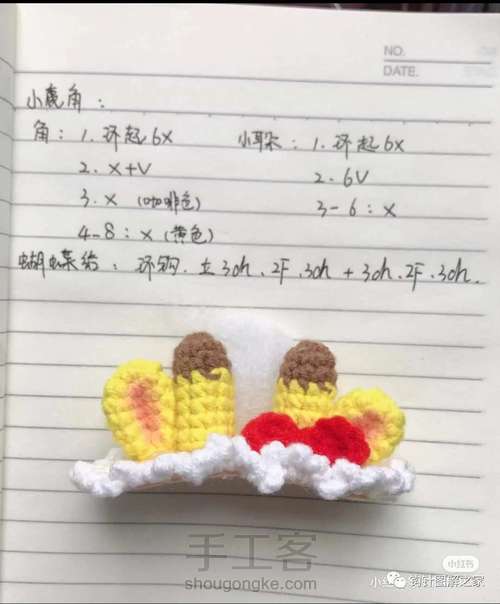 NO.
DATE.
小鹿角：
角：1. 环起6X 小耳朵：1. 环起6X
2. X+V 2. 6V
3. X (咖啡色) 3-6：X
4-8：X (黄色)
蝴蝶结：环钩. 立3ch、2F、3ch + 3ch、2F、3ch.
手工客
shougongke.com
小红书
钩针图解之家